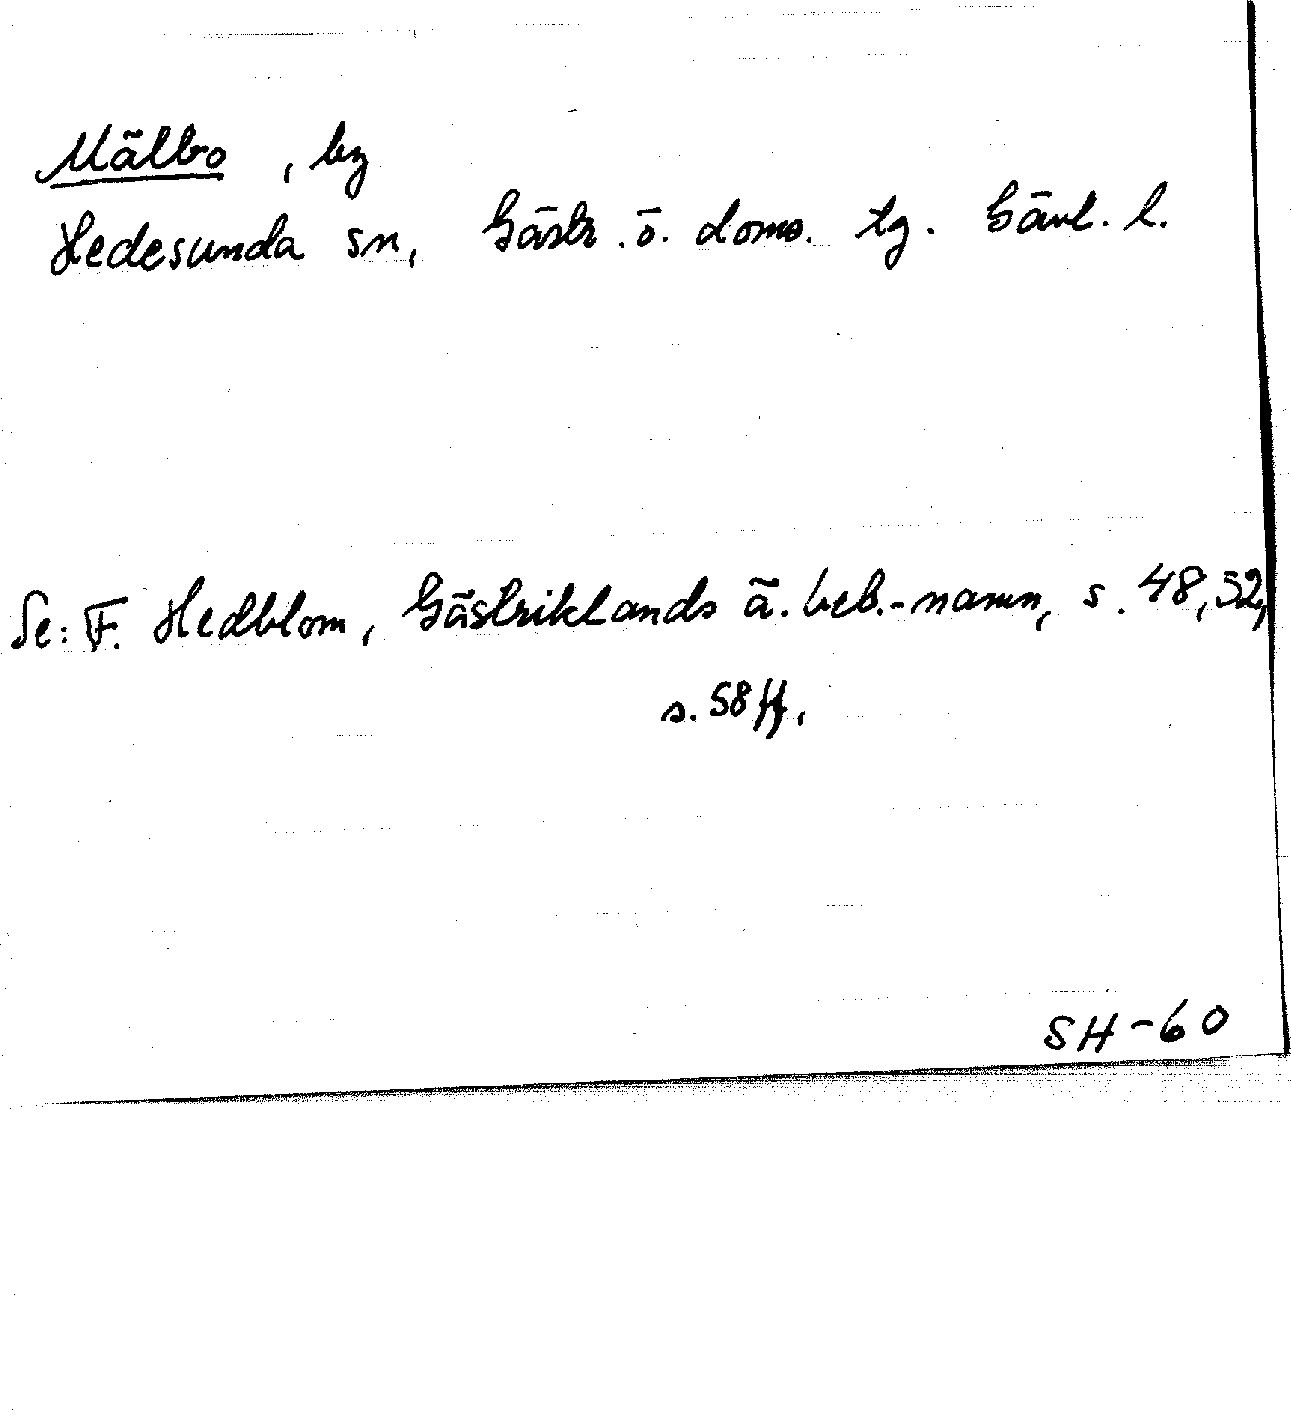 Mälbo , by
Hedesunda sn, Gästr. ö. doms. tg. Gävl. l.
Se: F. Hedblom, Gästriklands ä. beb.-namn, s. 48, 52,
s. 58 ff.
SH-60